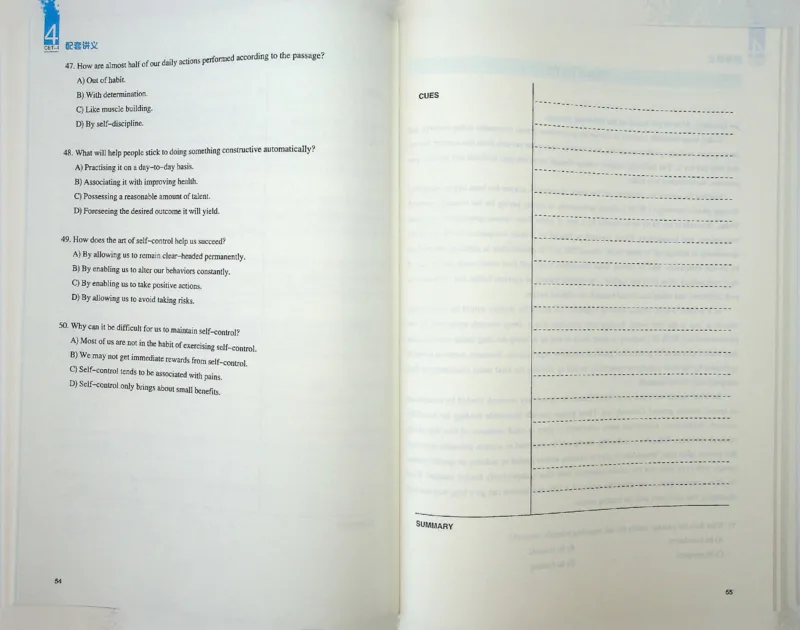 4
CET-4
配套讲义
47. How are almost half of our daily actions performed according to the passage?
A) Out of habit.
B) With determination.
C) Like muscle building.
D) By self-discipline.
48. What will help people stick to doing something constructive automatically?
A) Practising it on a day-to-day basis.
B) Associating it with improving health.
C) Possessing a reasonable amount of talent.
D) Foreseeing the desired outcome it will yield.
49. How does the art of self-control help us succeed?
A) By allowing us to remain clear-headed permanently.
B) By enabling us to alter our behaviors constantly.
C) By enabling us to take positive actions.
D) By allowing us to avoid taking risks.
50. Why can it be difficult for us to maintain self-control?
A) Most of us are not in the habit of exercising self-control.
B) We may not get immediate rewards from self-control.
C) Self-control tends to be associated with pains.
D) Self-control only brings about small benefits.
54
CUES
SUMMARY
55